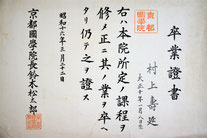 卒業證書
京都國學院
村上壽延
大正十年一月八日生
右ハ本院所定ノ課程ヲ
修メ正ニ其ノ業ヲ卒ヘ
タリ仍テ之ヲ證ス
昭和十六年三月二十二日
京都國學院長鈴木松太郎